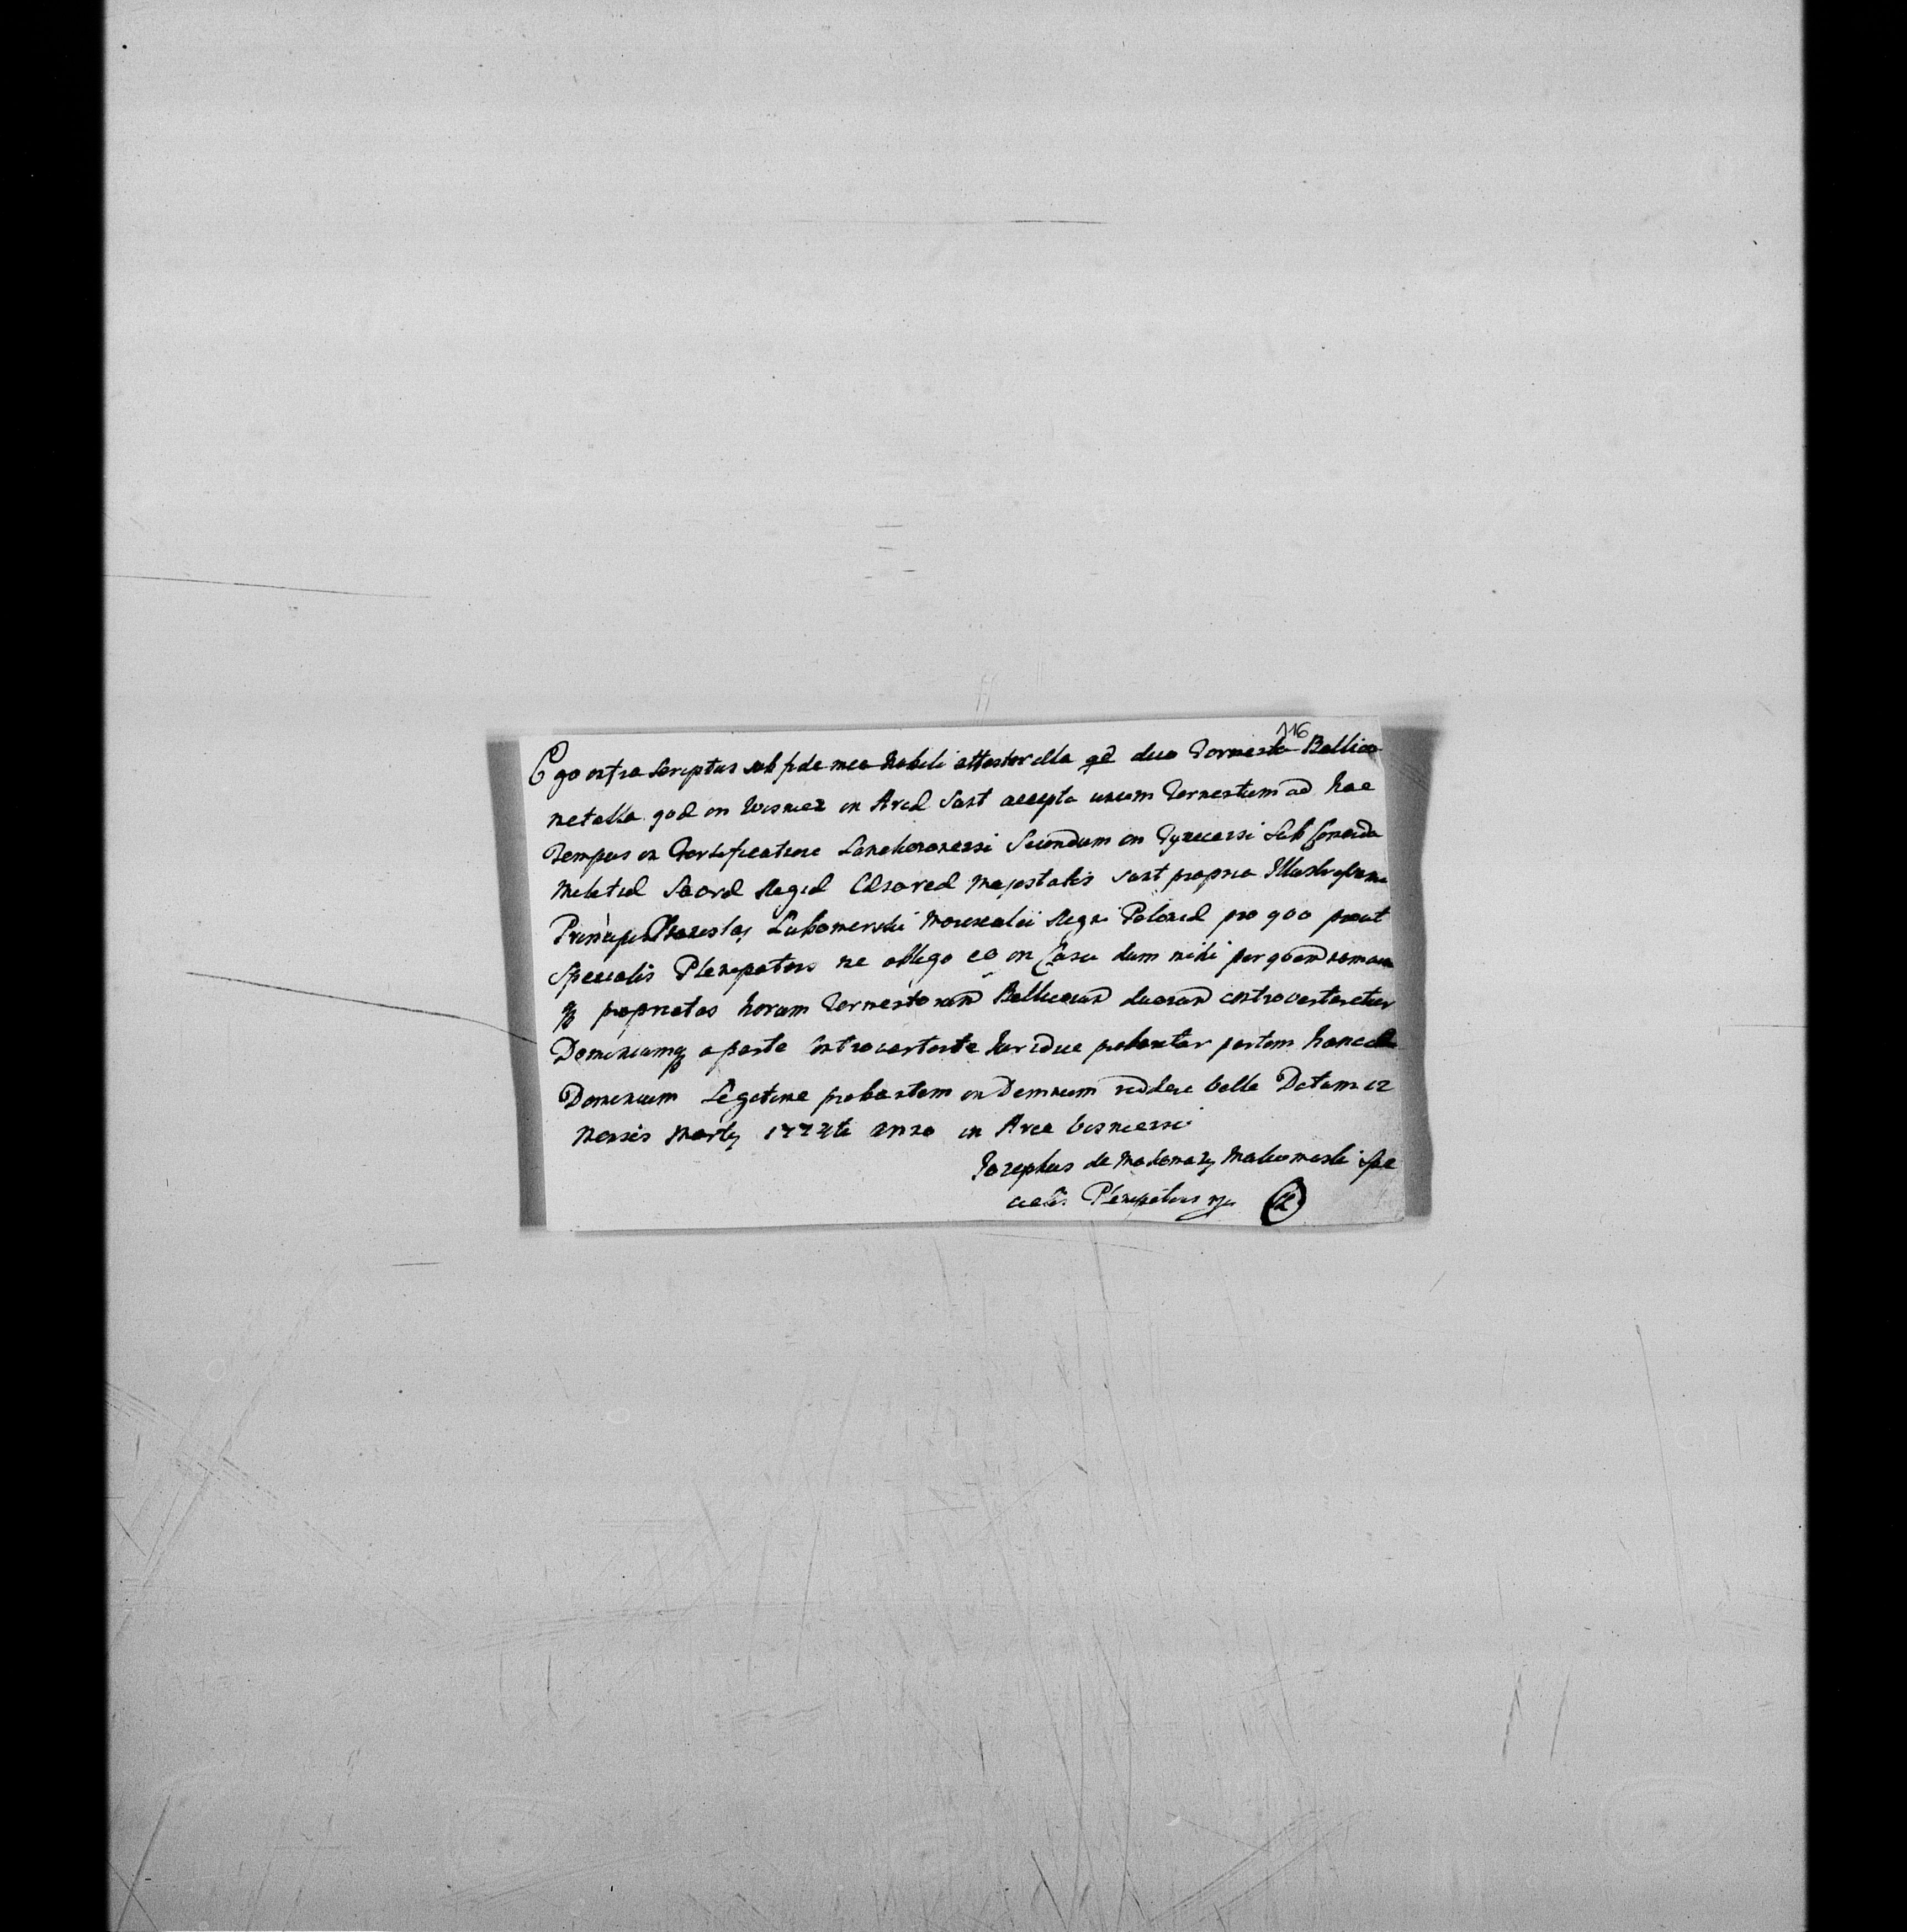 116
Ego infra scriptus sub fide mea Nobili attestor illa qd duo Tormenta Bellica
metalla quae in Wisnicz in Arce sunt accepta unum Tormentum ad hoc
Tempus in Fortificatione Lanckoronensi Secundum in Tynecensi sub
Militiae Sacrae Regiae Caesareae Majestatis sunt propria Illustrissimi
Principis Lubomirski Regni Poloniae pro quo prout
Specialis Plenipotens me obligo eo in Casu dum mihi per
proprietas horum Tormentorum Bellicorum duorum controverteretur
Dominiumq a parte controvertente Juridice probaretur partem hancce
Dominium Legitime probantem indemnem reddere velle Datum 12
Mensis Martij in Arce Visnicensi
Josephus de Spe
cialis Plenipotens mp